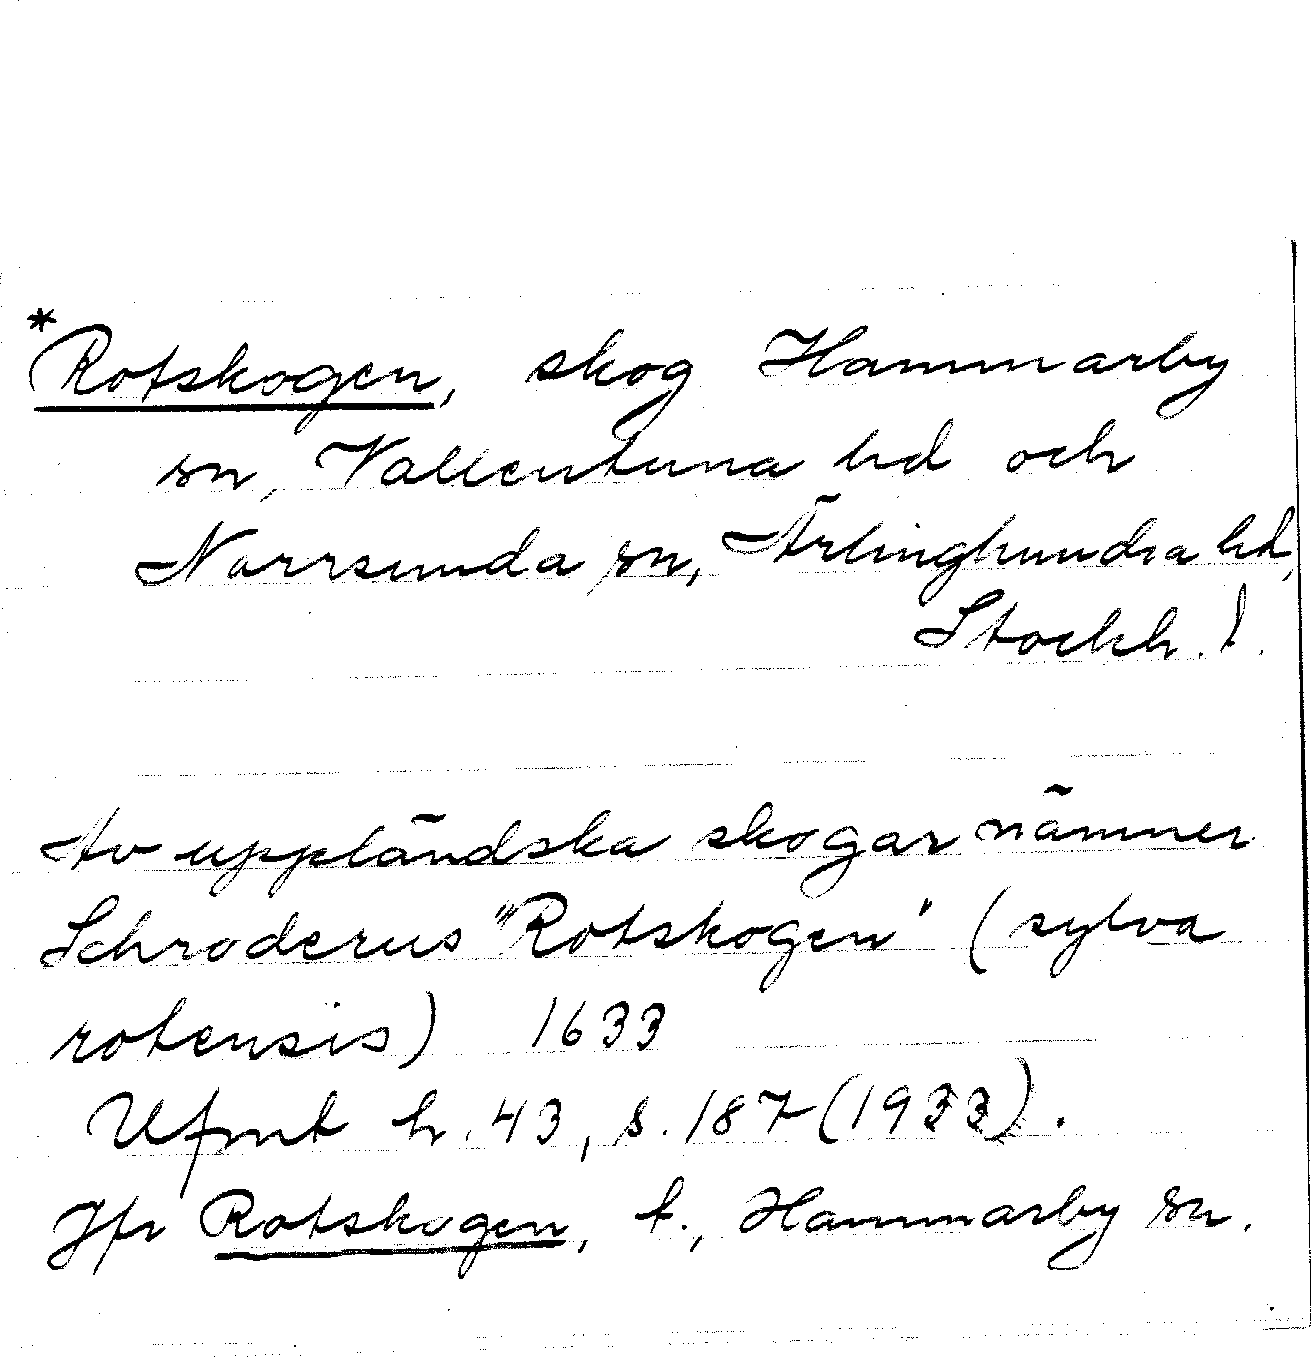 *Rotskogen, skog Hammarby
sn, Vallentuna hd och
Norrsunda sn, Ärlinghundra hd,
Stockh. l.
Av uppländska skogar nämner
Schroderus "Rotskogen" (sylva
rotensis) 1633
Ufmt h. 43, s. 187 (1933).
Jfr Rotskogen, t., Hammarby sn.